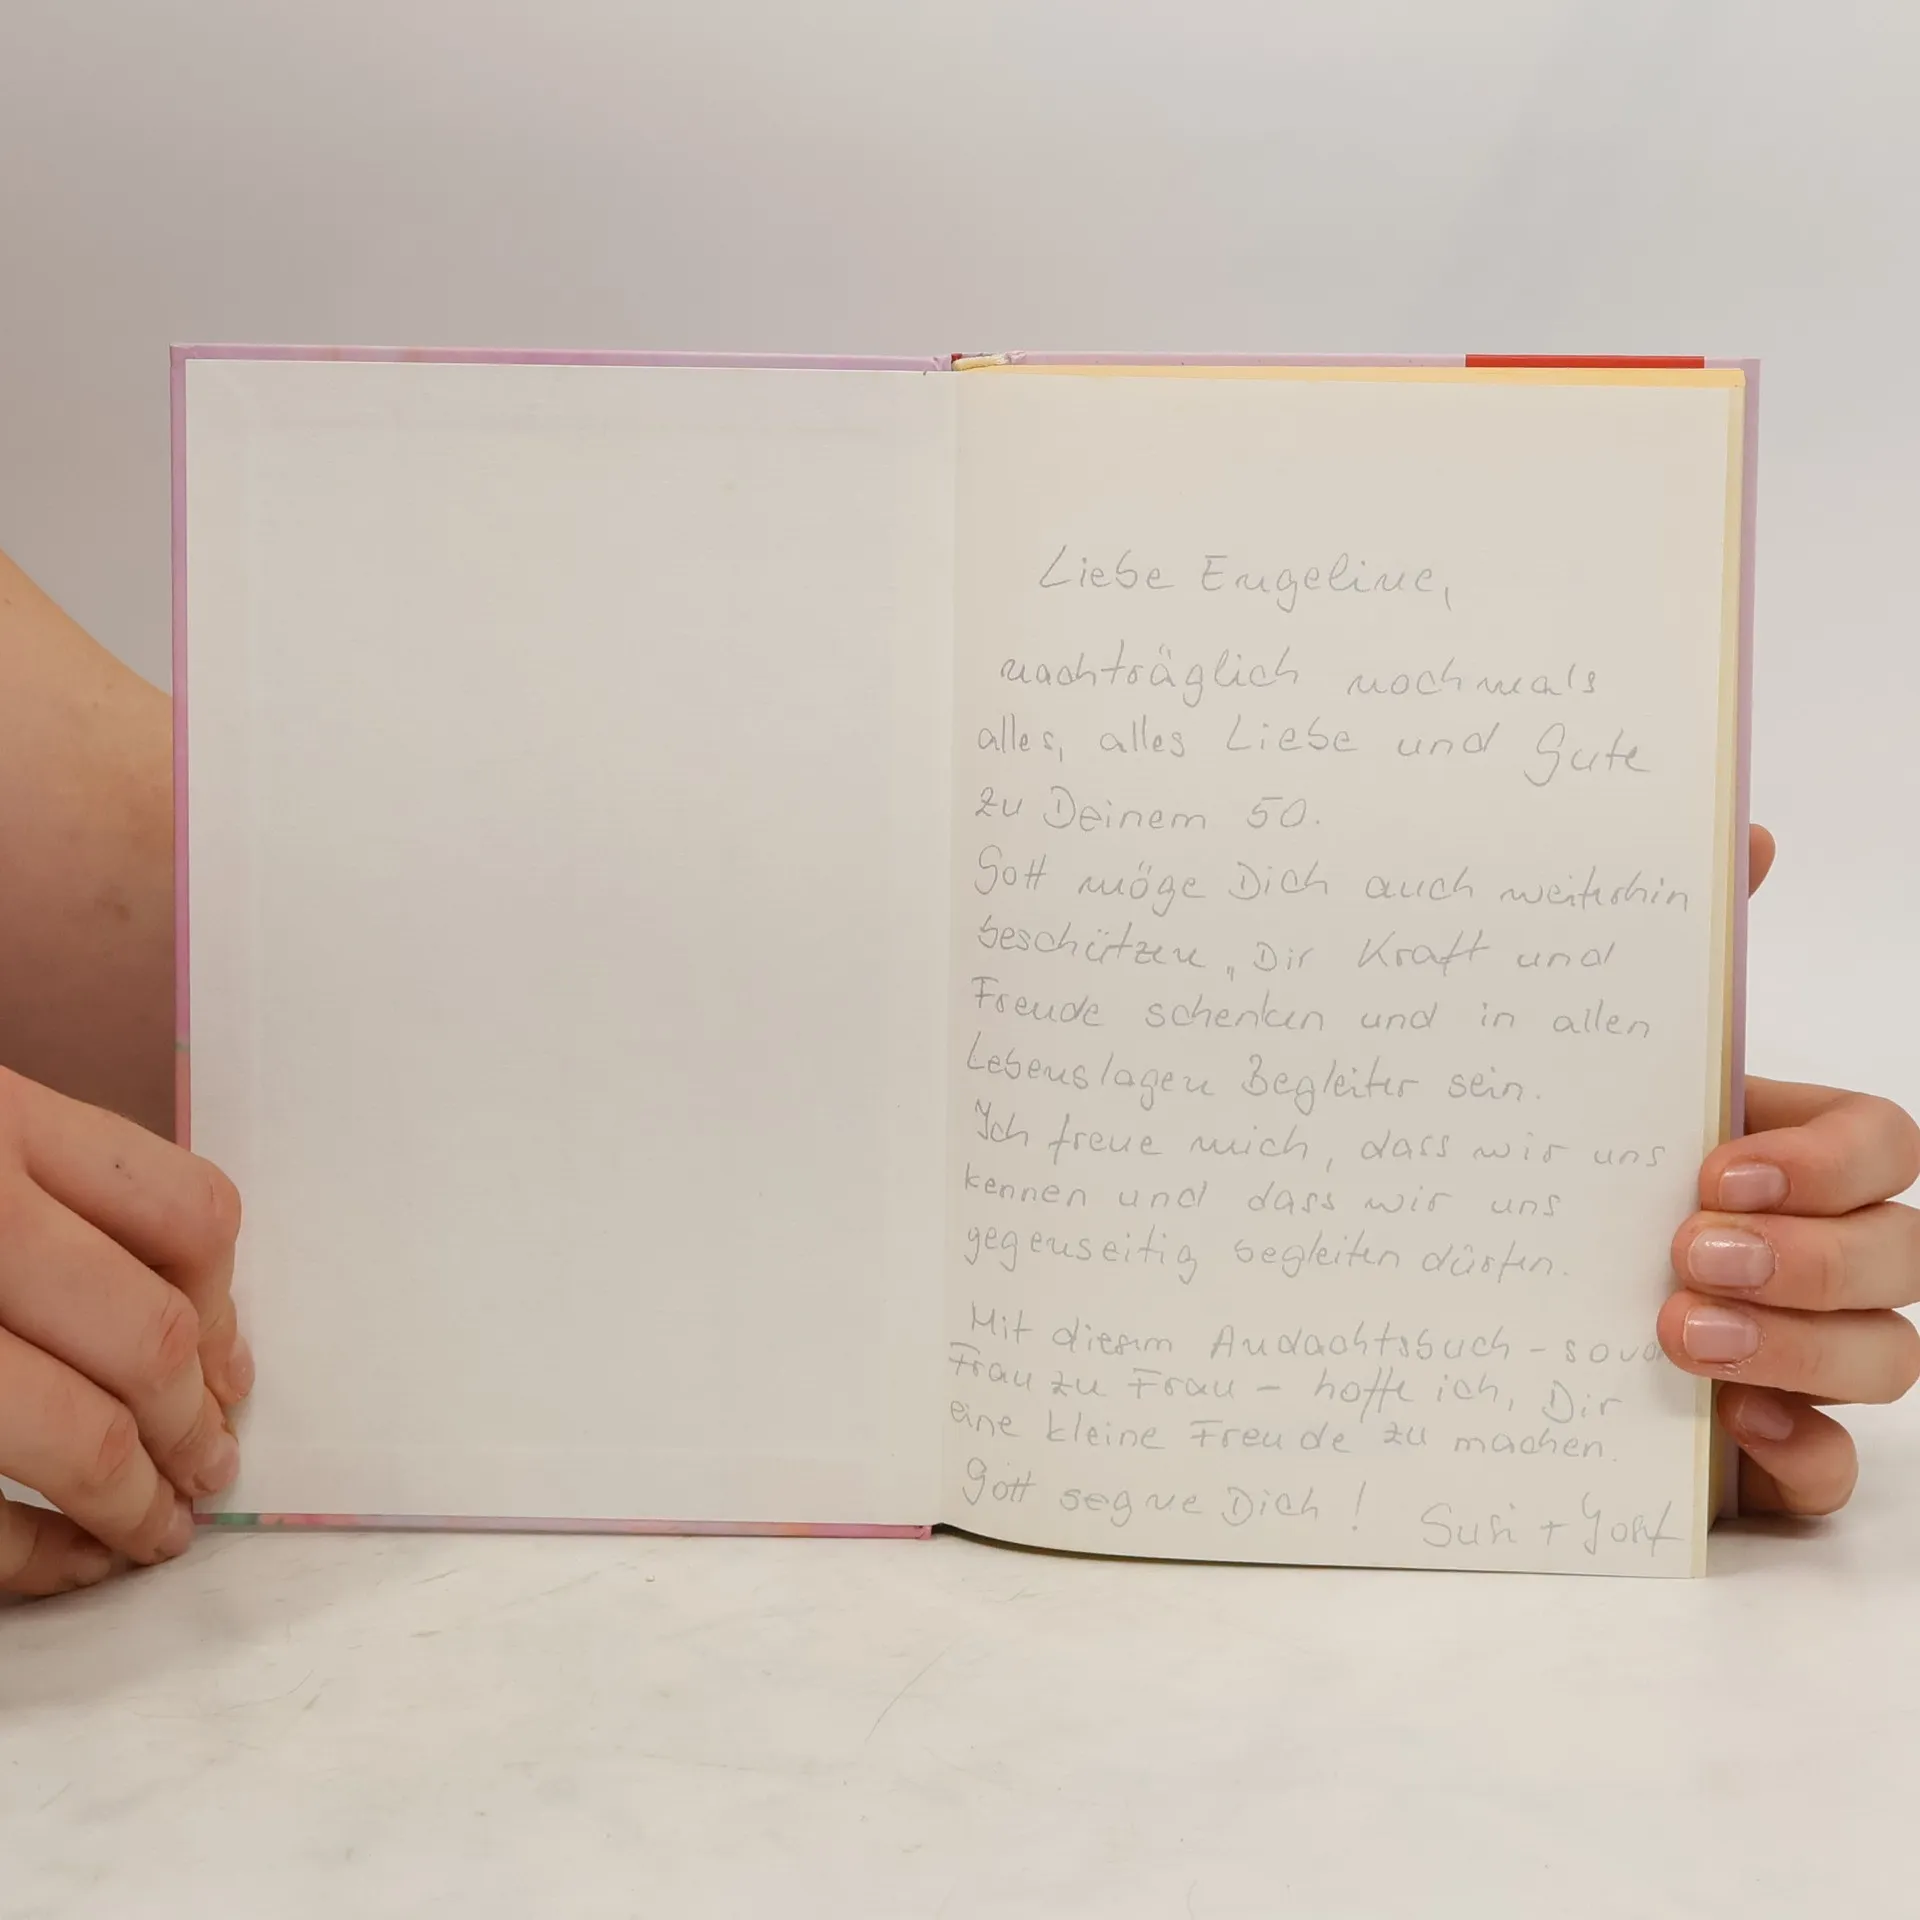 Liebe Engeline,
nachträglich nochmals
alles, alles Liebe und Gute
zu Deinem 50.
Gott möge Dich auch weiterhin
beschützen, Dir Kraft und
Freude schenken und in allen
Lebenslagen Begleiter sein.
Ich freue mich, dass wir uns
kennen und dass wir uns
gegenseitig begleiten dürfen.
Mit diesem Andachtsbuch -
Frau zu Frau - hoffe ich, Dir
eine kleine Freude zu machen.
Gott segne Dich! Susi +